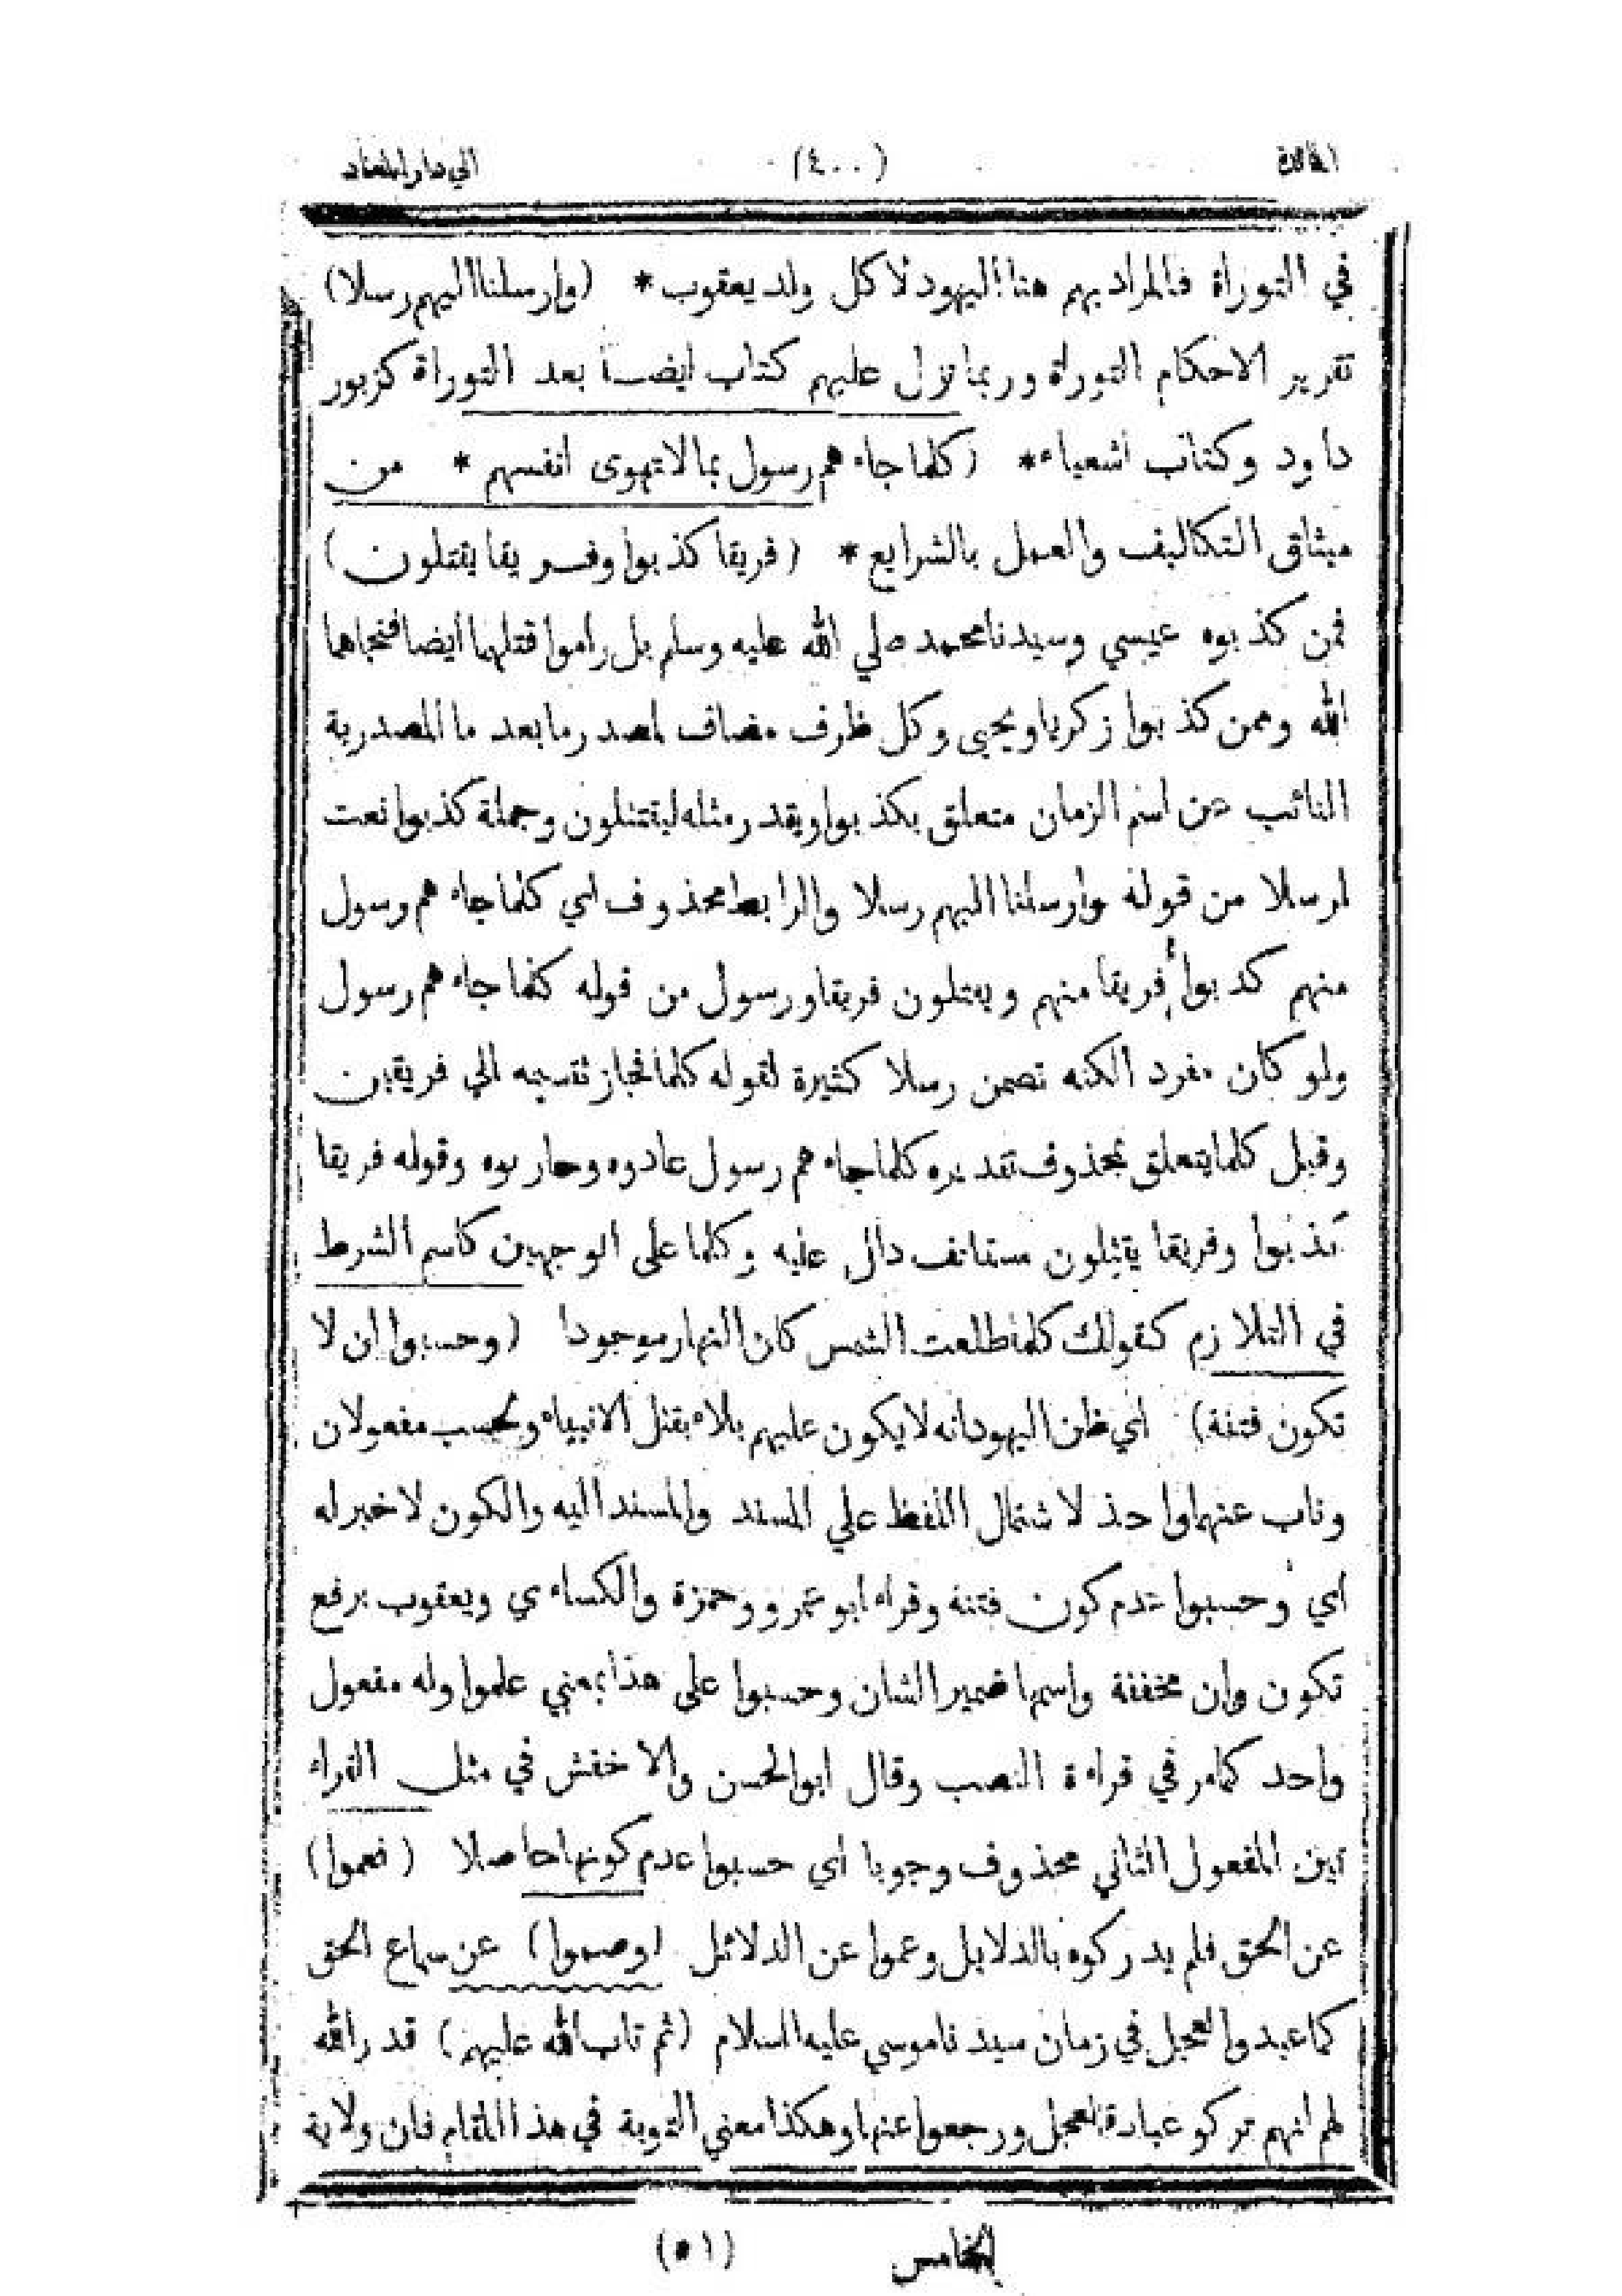 المائدة (٤٠٠) الي دار المعاد
في التوراة فالمراد بهم هنا اليهود لا كل ولد يعقوب * (وارسلنا اليهم رسلا)
تقرير الاحكام التوراة وربما نزل عليهم كتاب ايضا بعد التوراة كزبور
داود وكتاب اشعياء * (كلما جاءهم رسول بما لا تهوى انفسهم * من
ميثاق التكاليف والعمل بالشرايع * (فريقا كذبوا وفريقا يقتلون)
فمن كذبوه عيسي وسيدنا محمد صلي الله عليه وسلم بل راموا قتلهما ايضا فنجاهما
الله وممن كذبوا زكريا ويحيى وكل ظرف مضاف لمصدر ما بعد ما المصدرية
النائب عن اسم الزمان متعلق بكذبوا ويقدر مثله ليقتلون وجملة كذبوا نعت
لرسلا من قوله وارسلنا اليهم رسلا والرابط محذوف اي كلما جاءهم رسول
منهم كذبوا فريقا منهم ويقتلون فريقا ورسول من قوله كلما جاءهم رسول
ولو كان مفردا لكنه تضمن رسلا كثيرة لقوله كلما فجاز تقسيمه الي فريقين
وقيل كلما يتعلق بمحذوف تقديره كلما جاءهم رسول عادوه وحاربوه وقوله فريقا
كذبوا وفريقا يقتلون مستانف دال عليه وكلما على الوجهين كاسم الشرط
في التلازم كقولك كلما طلعت الشمس كان النهار موجودا (وحسبوا ان لا
تكون فتنة) اي ظن اليهود انه لا يكون عليهم بلاء بقتل الانبياء ولحسب مفعولان
وناب عنهما واحد لاشتمال اللفظ علي المسند والمسند اليه والكون لا خبر له
اي وحسبوا عدم كون فتنة وقراء ابو عمرو وحمزة والكساءي ويعقوب برفع
تكون وان مخففة واسمها ضمير الشان وحسبوا على هذا بمعني علموا وله مفعول
واحد كما مر في قراءة النصب وقال ابو الحسن والاخفش في مثل القراء
تين المفعول الثاني محذوف وجوبا اي حسبوا عدم كونها حاصلا (فعموا)
عن الحق فلم يدركوه بالدلايل وعموا عن الدلائل (وصموا) عن سماع الحق
كما عبدوا العجل في زمان سيدنا موسي عليه السلام (ثم تاب الله عليهم) قدر الله
لهم انهم تركو عبادة العجل ورجعوا عنها وهكذا معني التوبة في هذا المقام فان ولاية
الخامس (٥١)